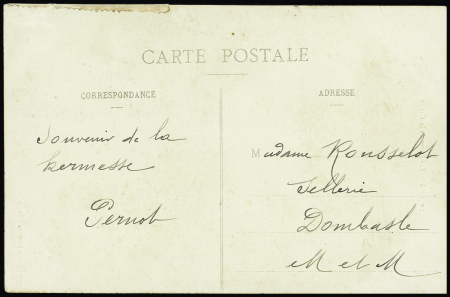 CARTE POSTALE
CORRESPONDANCE
ADRESSE
Souvenir de la
kermesse
Pernot
Madame Rousselot
Sellerie
Dombasle
M et M